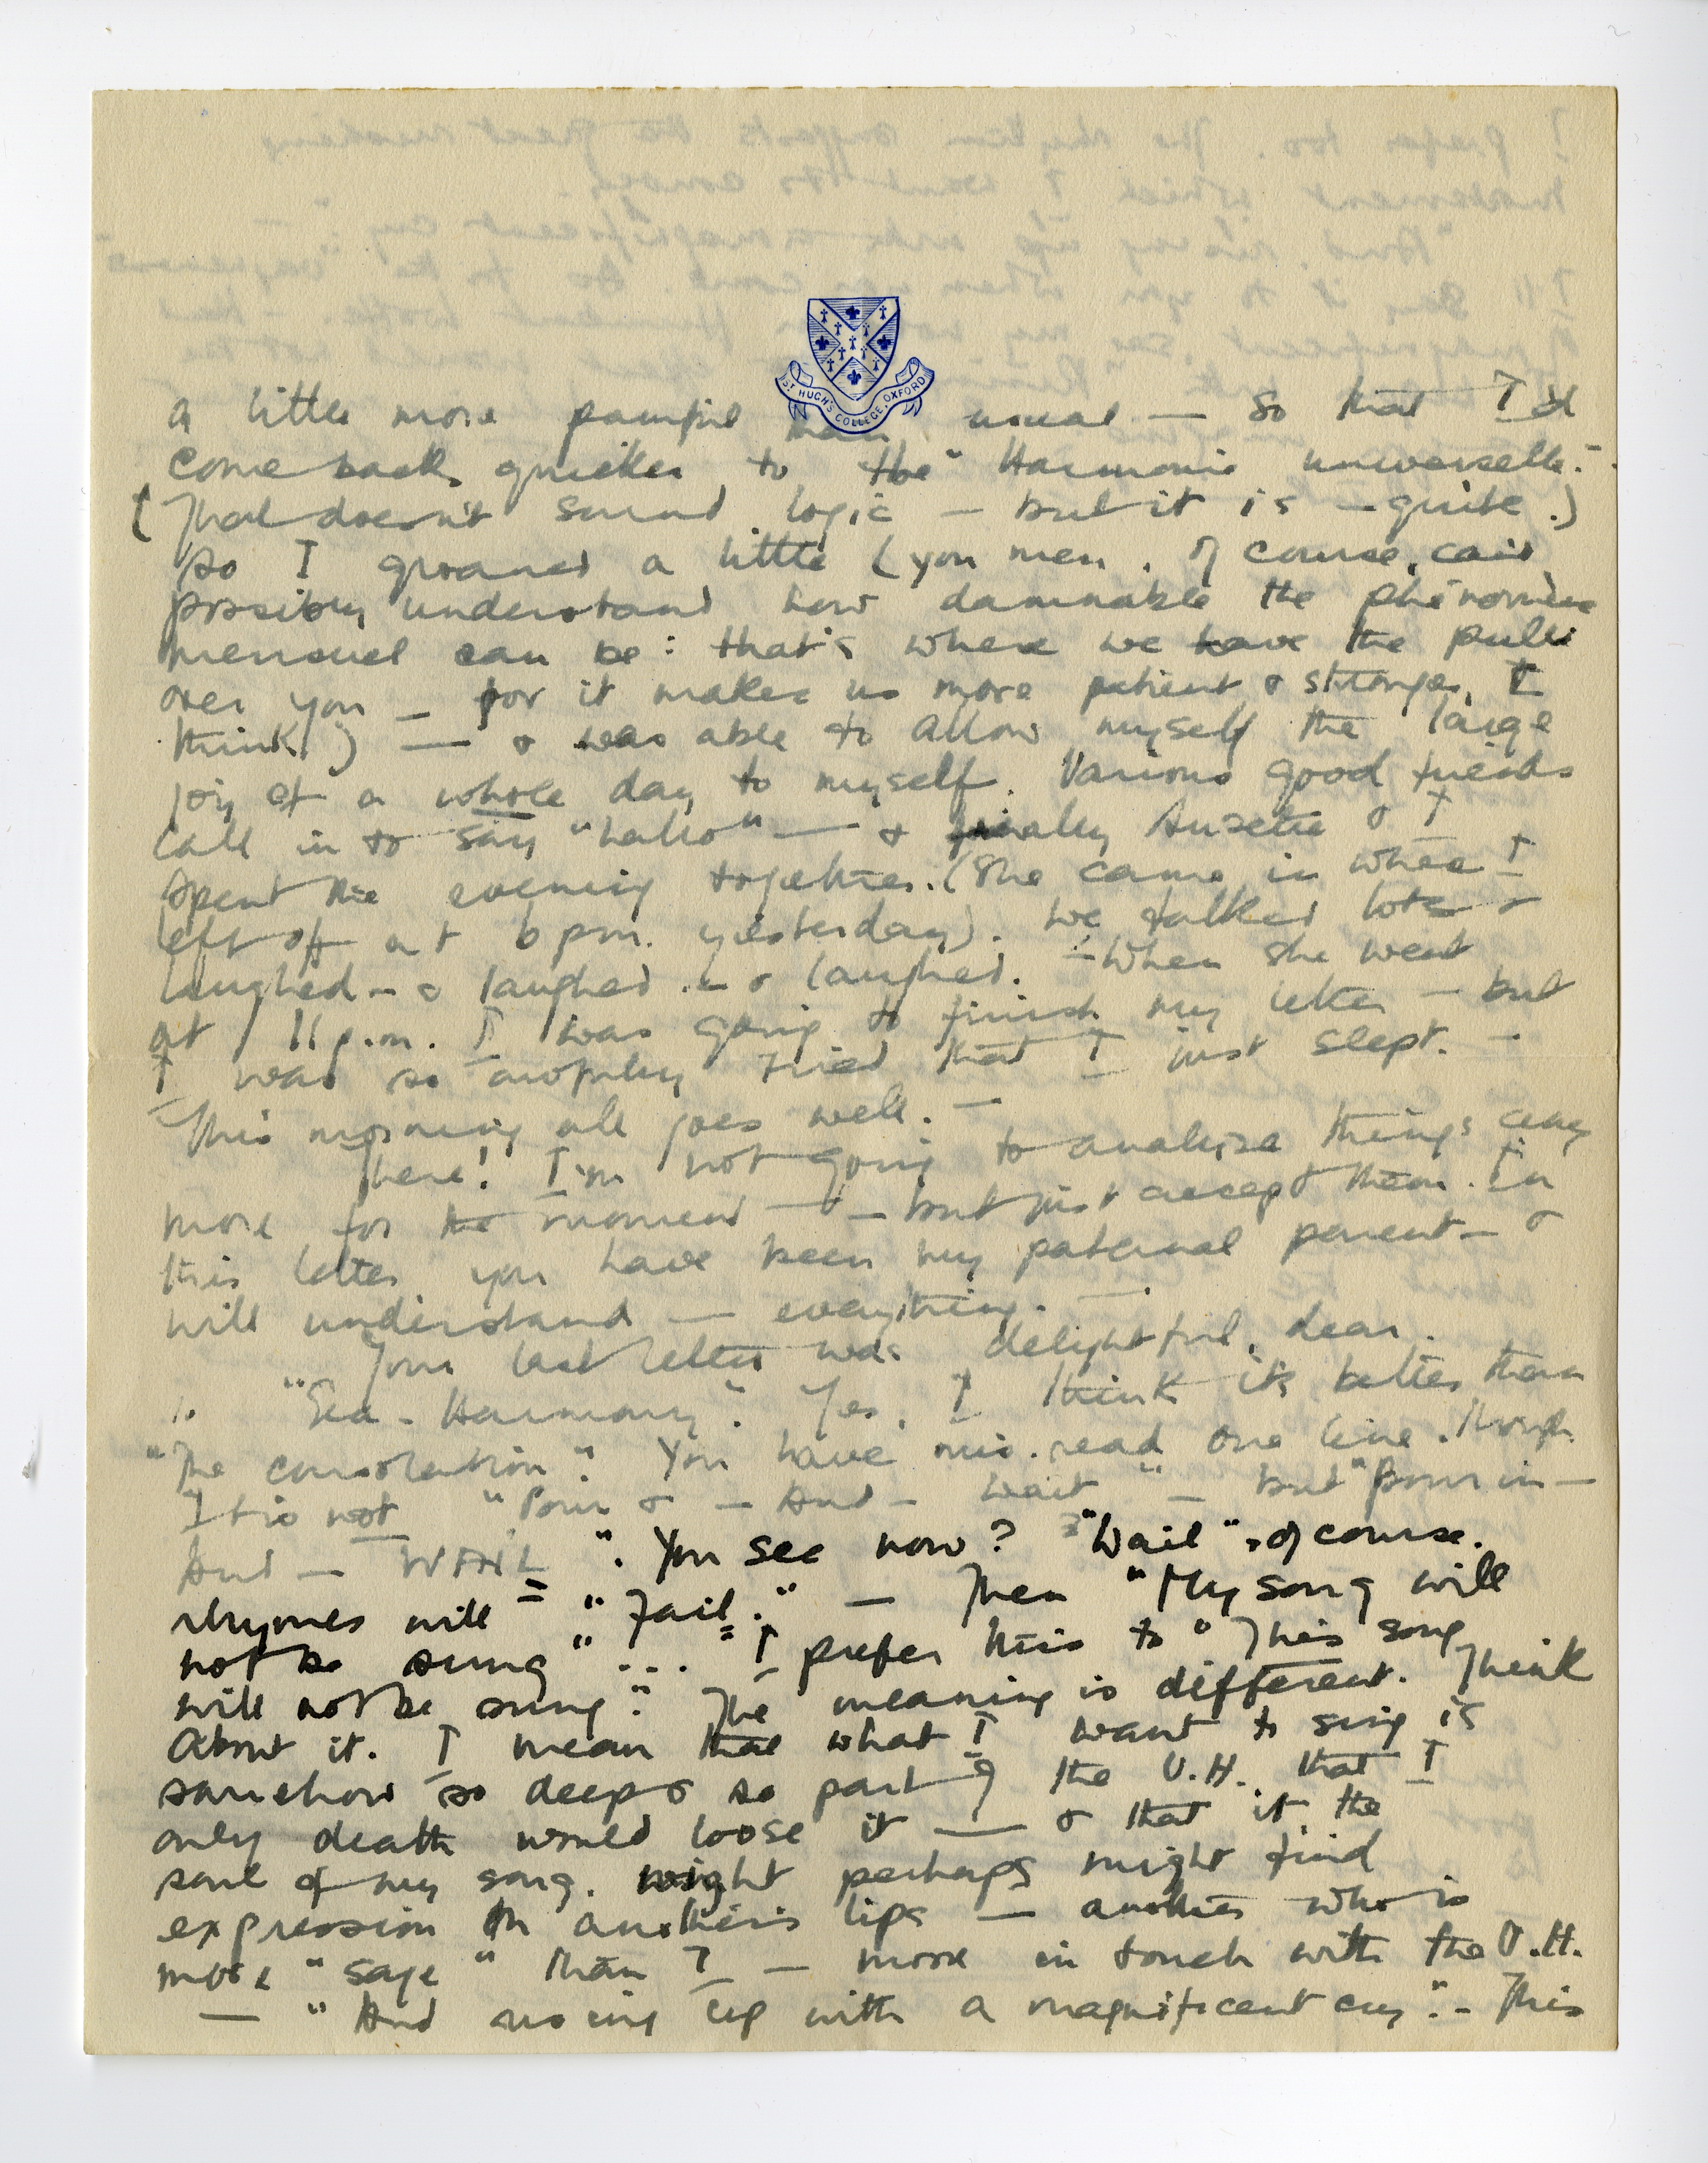 ST. HUGH'S COLLEGE, OXFORD
a little more painful than usual — so that I'd
come back quicker to the "Harmonie universelle."
(That doesn't sound logic — but it is — quite.)
So I groaned a little (you men, of course, can't
possibly understand how damnable the phénomène
mensuel can be: that's where we have the pull
over you — for it makes us more patient & stronger, I
think!) — & was able to allow myself the large
joy of a whole day to myself. Various good friends
call in to say "hallo" — & finally Suzette & I
spent the evening together. (She came in where I
left off at 6 p.m. yesterday). We talked lots &
laughed — & laughed — & laughed. — When she went
at 11 p.m. I was going to finish my letter — but
I was so awfully tired that I just slept. —
This morning all goes well. —
There! I'm not going to analyse things any
more for the moment — — but just accept them. In
this letter you have been my paternal parent — &
will understand — everything. —
Your last letter was delightful, dear.
1. "Sea-Harmony". Yes, I think it's better than
"The consolation". You have mis-read one line, though.
It is not "Pour & — And — wait" — but "Pour in —
And — WAIL". You see now? "Wail", of course,
rhymes with "Fail." — Then "My song will
not be sung" ... I prefer this to "This song
will not be sung". The meaning is different. Think
about it. I mean that what I want to sing is
somehow so deep & so part of the U.H. that I
only death would loose it — & that it, the
soul of my song, might perhaps might find
expression in another's lips — another who is
more "sage" than I — more in touch with the U.H.
— "And rising up with a magnificent cry". — This